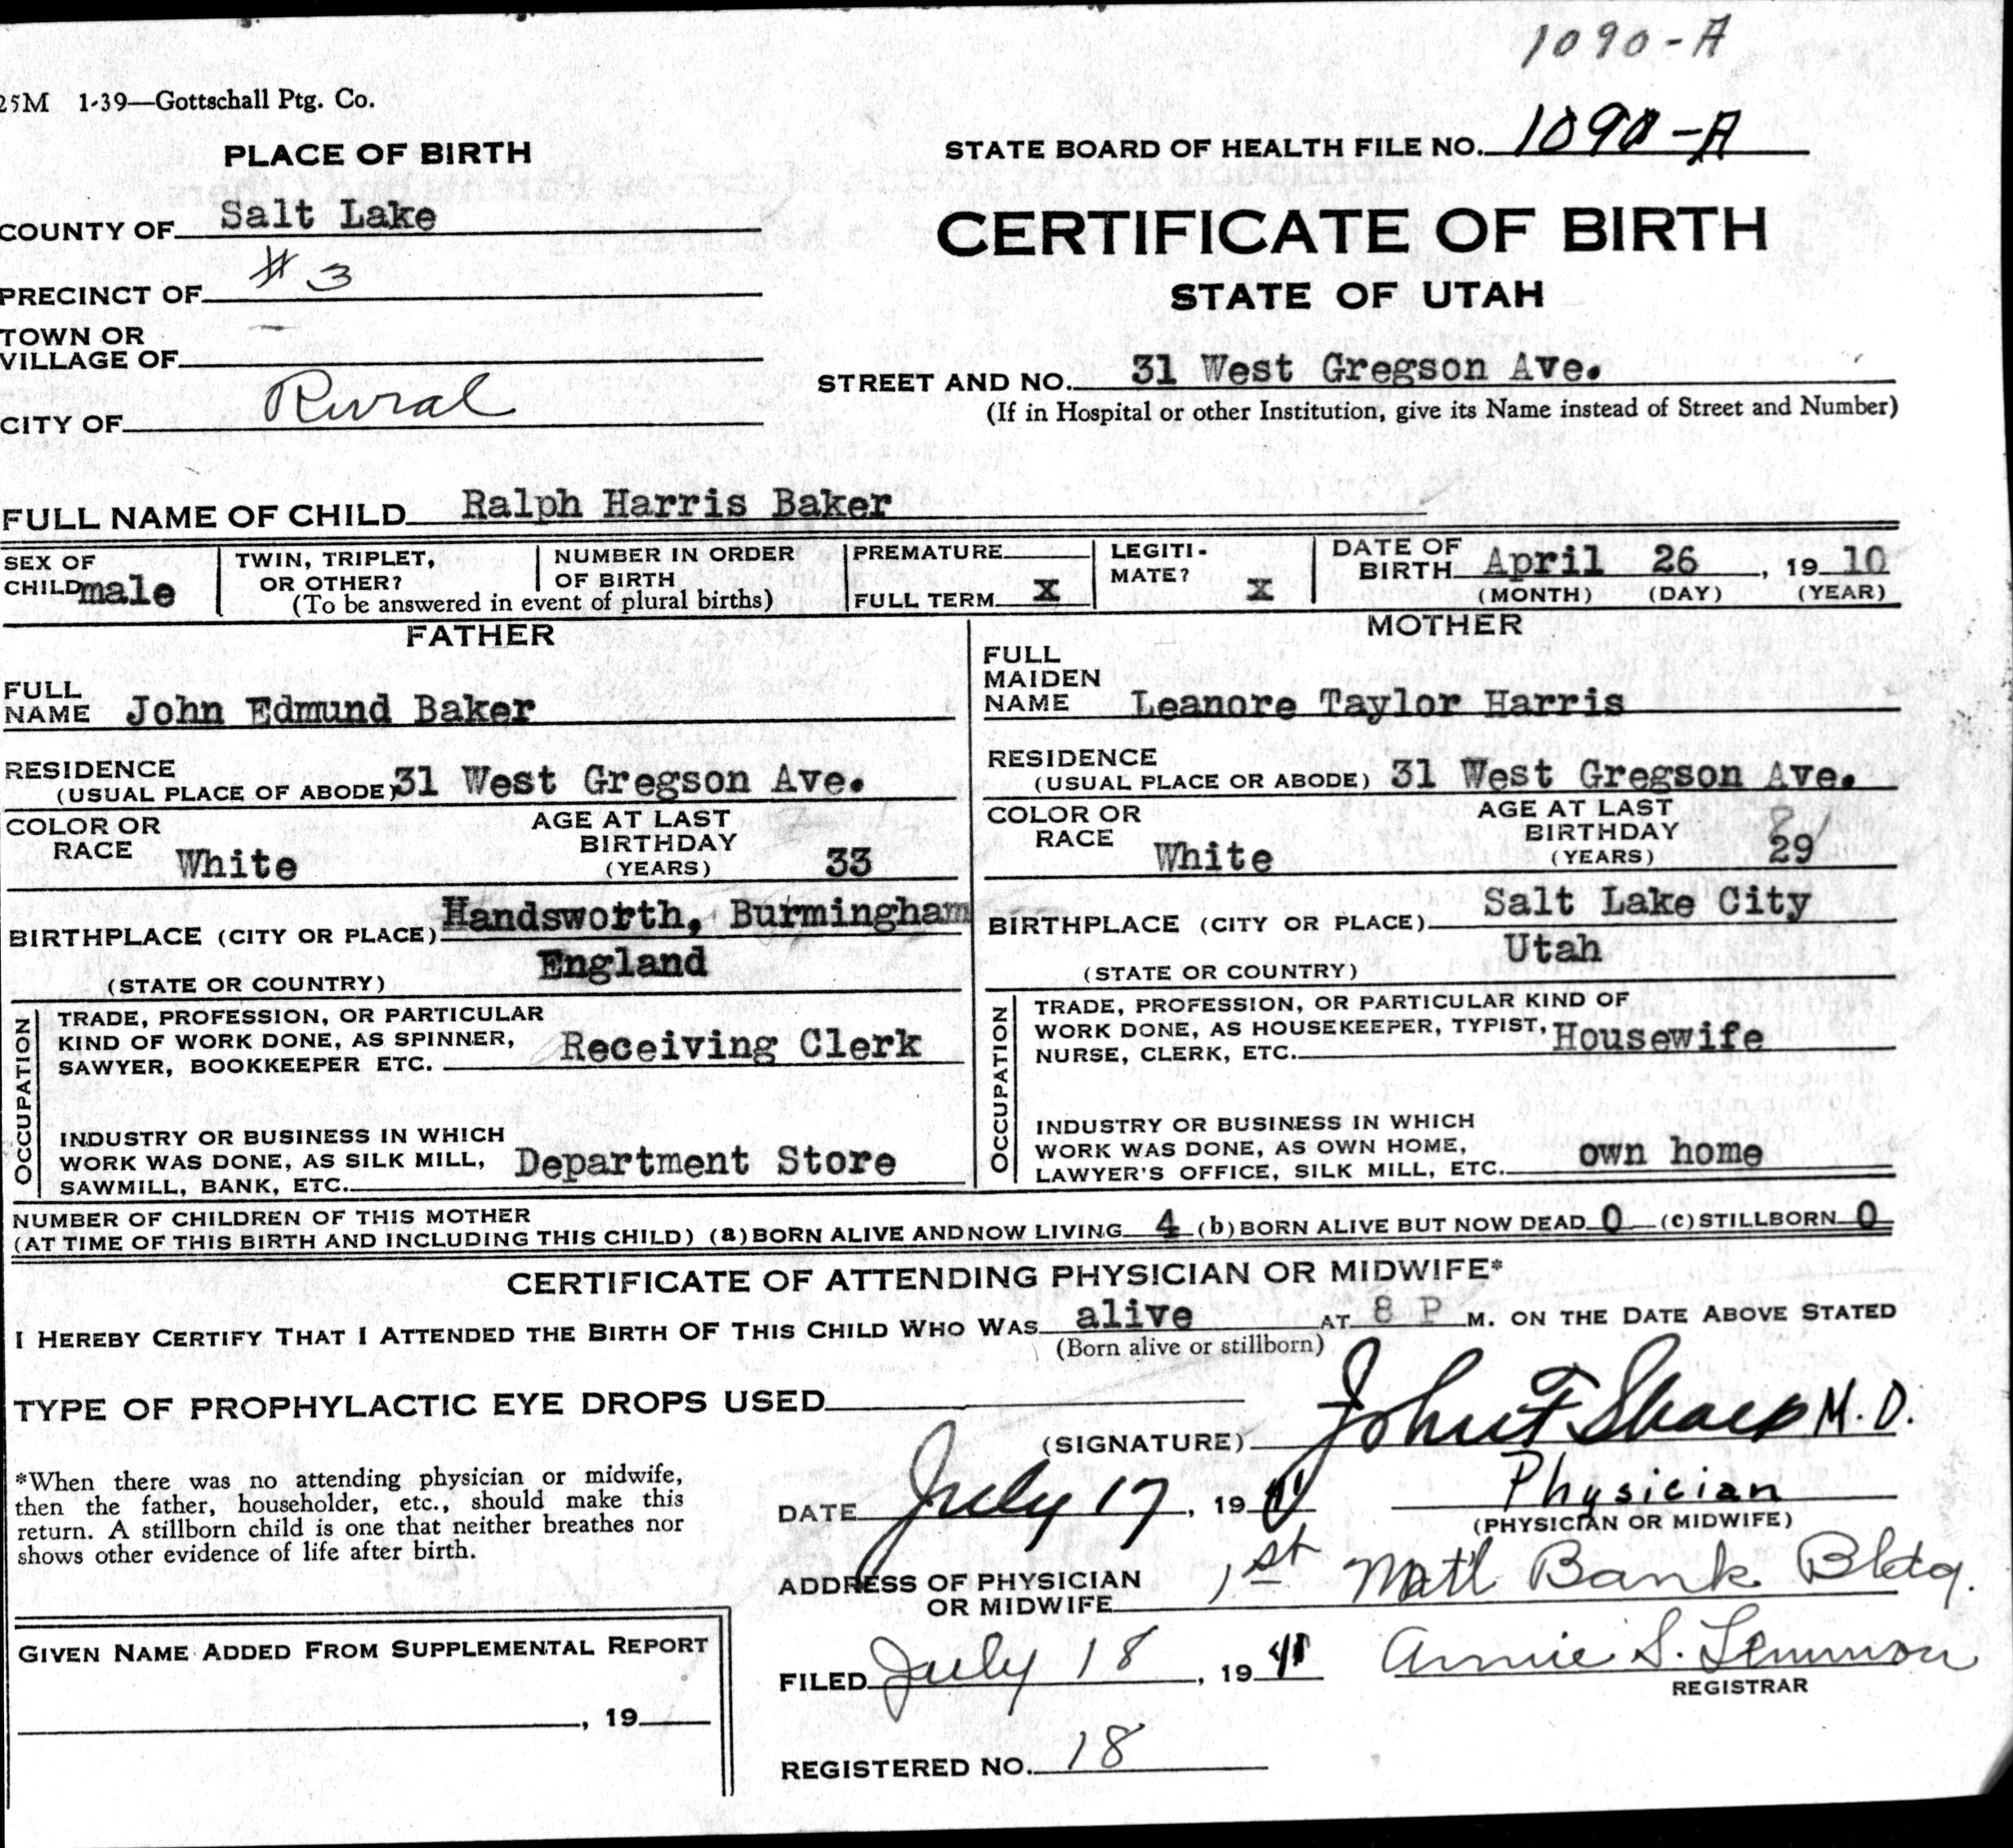 1090-A
25M 1-39—Gottschall Ptg. Co.
PLACE OF BIRTH
STATE BOARD OF HEALTH FILE NO. 1090-A
COUNTY OF Salt Lake
CERTIFICATE OF BIRTH
PRECINCT OF # 3
STATE OF UTAH
TOWN OR
VILLAGE OF
STREET AND NO. 31 West Gregson Ave.
(If in Hospital or other Institution, give its Name instead of Street and Number)
CITY OF Rural
FULL NAME OF CHILD Ralph Harris Baker
SEX OF
CHILD male
TWIN, TRIPLET,
OR OTHER?
NUMBER IN ORDER
OF BIRTH
(To be answered in event of plural births)
PREMATURE
FULL TERM X
LEGITI-
MATE? X
DATE OF
BIRTH April 26, 1910
(MONTH) (DAY) (YEAR)
FATHER
FULL
NAME John Edmund Baker
RESIDENCE
(USUAL PLACE OF ABODE) 31 West Gregson Ave.
COLOR OR
RACE White
AGE AT LAST
BIRTHDAY
(YEARS) 33
BIRTHPLACE (CITY OR PLACE) Handsworth, Burmingham
England
(STATE OR COUNTRY)
OCCUPATION
TRADE, PROFESSION, OR PARTICULAR
KIND OF WORK DONE, AS SPINNER,
SAWYER, BOOKKEEPER ETC. Receiving Clerk
INDUSTRY OR BUSINESS IN WHICH
WORK WAS DONE, AS SILK MILL,
SAWMILL, BANK, ETC. Department Store
MOTHER
FULL
MAIDEN
NAME Leanore Taylor Harris
RESIDENCE
(USUAL PLACE OR ABODE) 31 West Gregson Ave.
COLOR OR
RACE White
AGE AT LAST
BIRTHDAY
(YEARS) 29
BIRTHPLACE (CITY OR PLACE) Salt Lake City
Utah
(STATE OR COUNTRY)
OCCUPATION
TRADE, PROFESSION, OR PARTICULAR KIND OF
WORK DONE, AS HOUSEKEEPER, TYPIST,
NURSE, CLERK, ETC. Housewife
INDUSTRY OR BUSINESS IN WHICH
WORK WAS DONE, AS OWN HOME,
LAWYER'S OFFICE, SILK MILL, ETC. own home
NUMBER OF CHILDREN OF THIS MOTHER
(AT TIME OF THIS BIRTH AND INCLUDING THIS CHILD) (a) BORN ALIVE AND NOW LIVING 4 (b) BORN ALIVE BUT NOW DEAD 0 (c) STILLBORN 0
CERTIFICATE OF ATTENDING PHYSICIAN OR MIDWIFE*
I HEREBY CERTIFY THAT I ATTENDED THE BIRTH OF THIS CHILD WHO WAS alive AT 8 P M. ON THE DATE ABOVE STATED
(Born alive or stillborn)
TYPE OF PROPHYLACTIC EYE DROPS USED
(SIGNATURE) John F Sharp M.D.
*When there was no attending physician or midwife,
then the father, householder, etc., should make this
return. A stillborn child is one that neither breathes nor
shows other evidence of life after birth.
DATE July 17, 1941
Physician
(PHYSICIAN OR MIDWIFE)
ADDRESS OF PHYSICIAN
OR MIDWIFE 1st Nat'l Bank Bldg.
GIVEN NAME ADDED FROM SUPPLEMENTAL REPORT
, 19
FILED July 18, 1941 Annie S. Lemmon
REGISTRAR
REGISTERED NO. 18